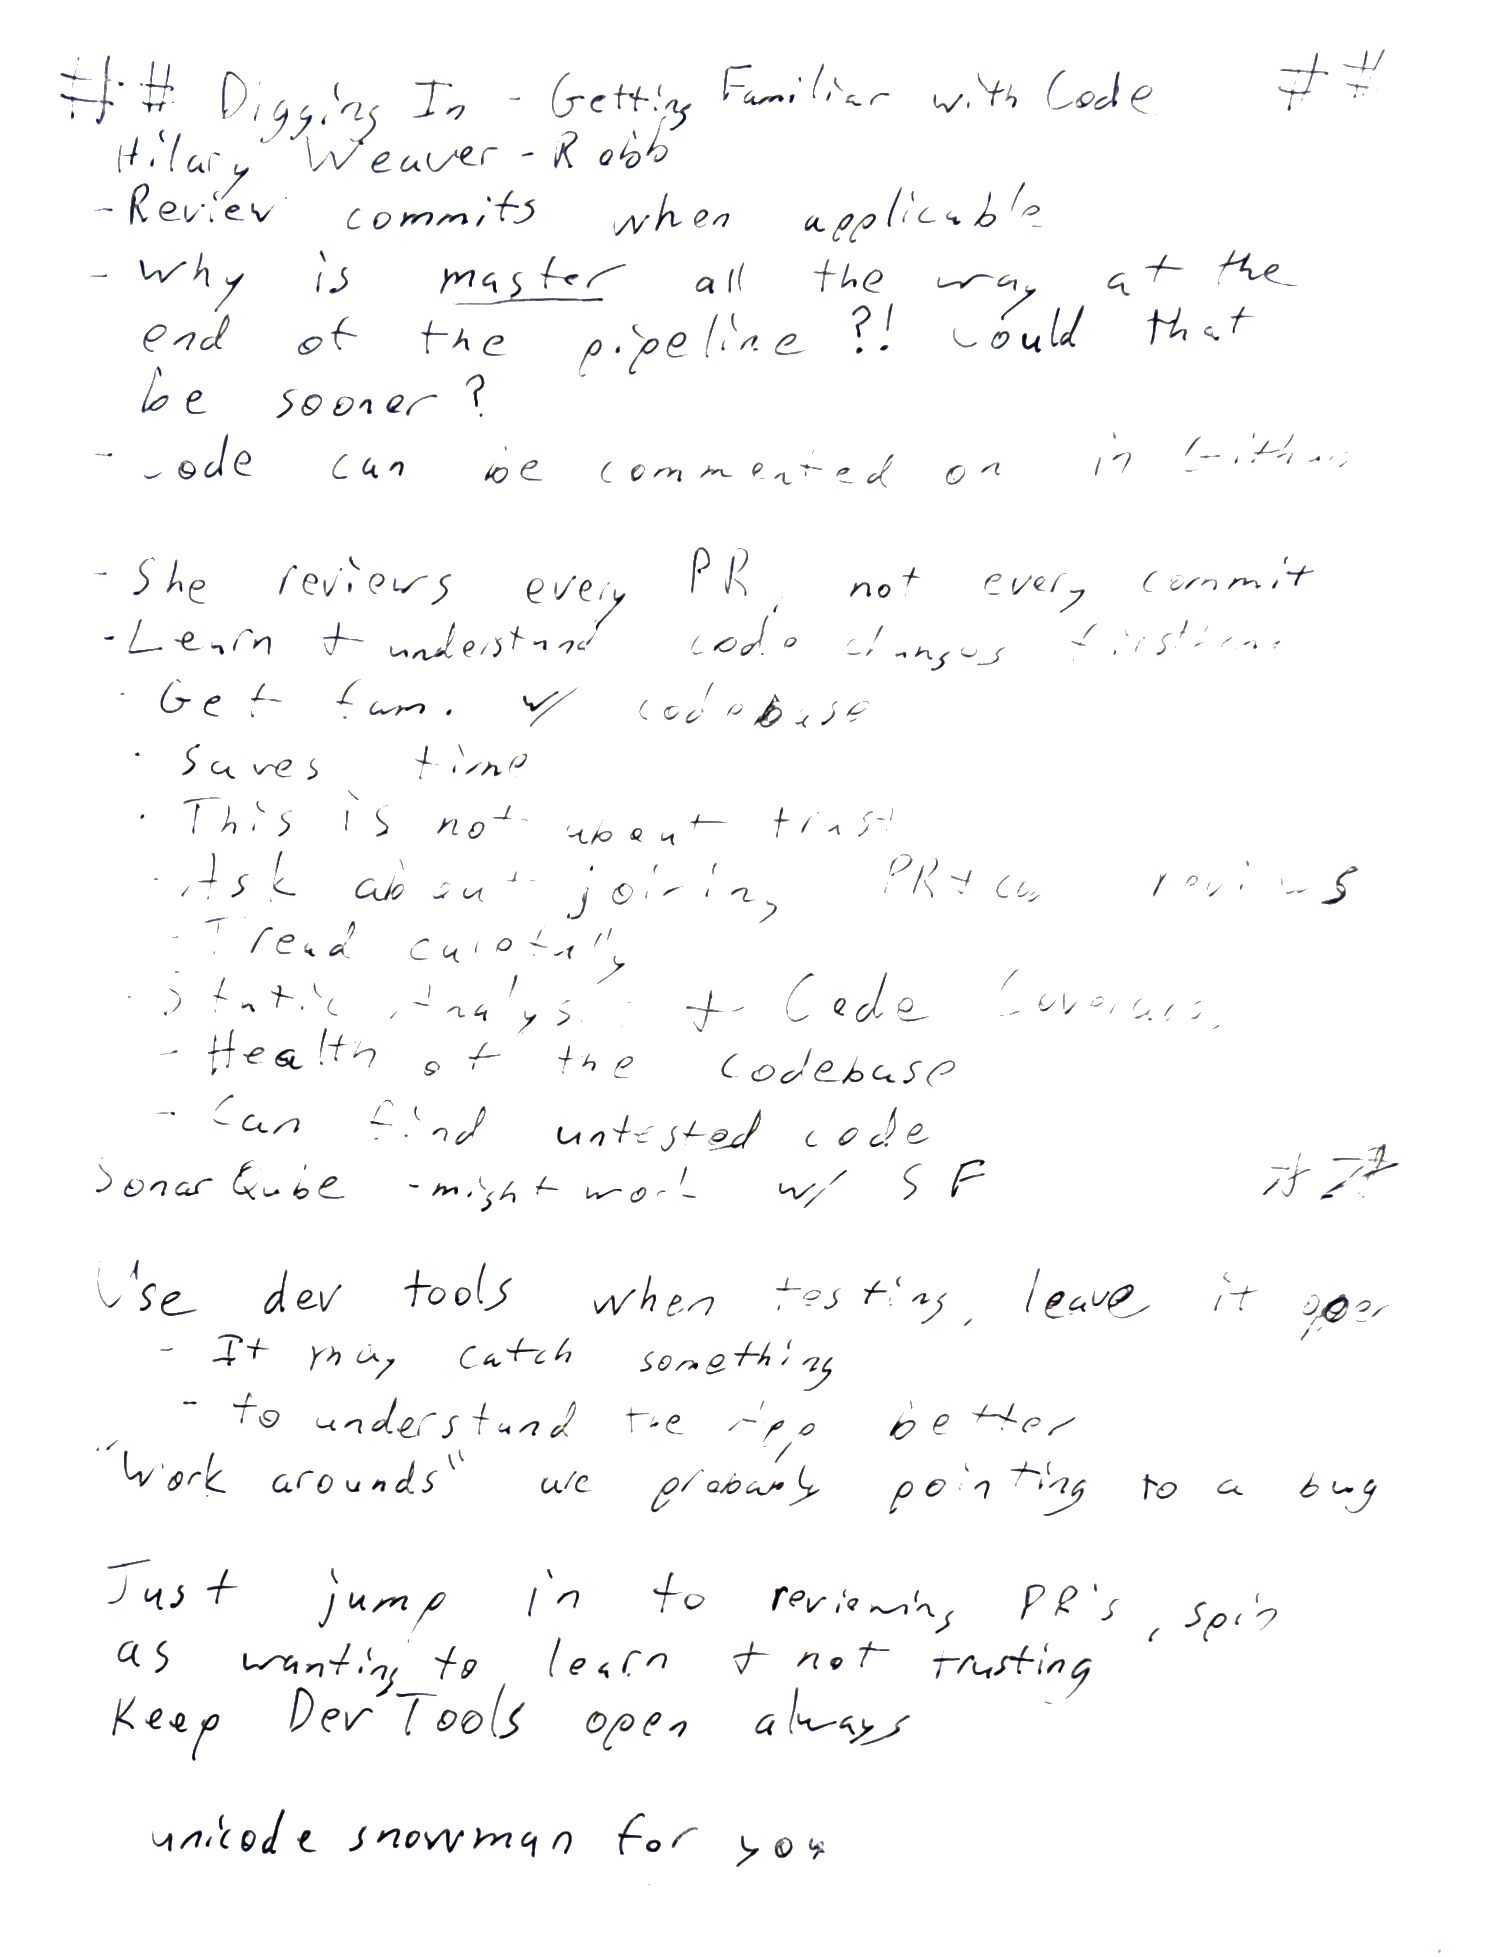 ## Digging In - Getting Familiar with Code ##
Hilary Weaver-Robb
- Review commits when applicable
- Why is master all the way at the
end of the pipeline?! Could that
be sooner?
- Code can be commented on in Github
- She reviews every PR, not every commit
- Learn + understand code changes firsthand
· Get fam. w/ codebase
· Saves time
· This is not about trust
· Ask about joining PR + code reviews
- Tread carefully
· Static Analysis + Code Coverage
- Health of the codebase
- Can find untested code
SonarQube - might work w/ SF ##
Use dev tools when testing, leave it open
- It may catch something
- to understand the app better
"Work arounds" are probably pointing to a bug
Just jump in to reviewing PR's, spin
as wanting to learn + not trusting
Keep Dev Tools open always
unicode snowman for you